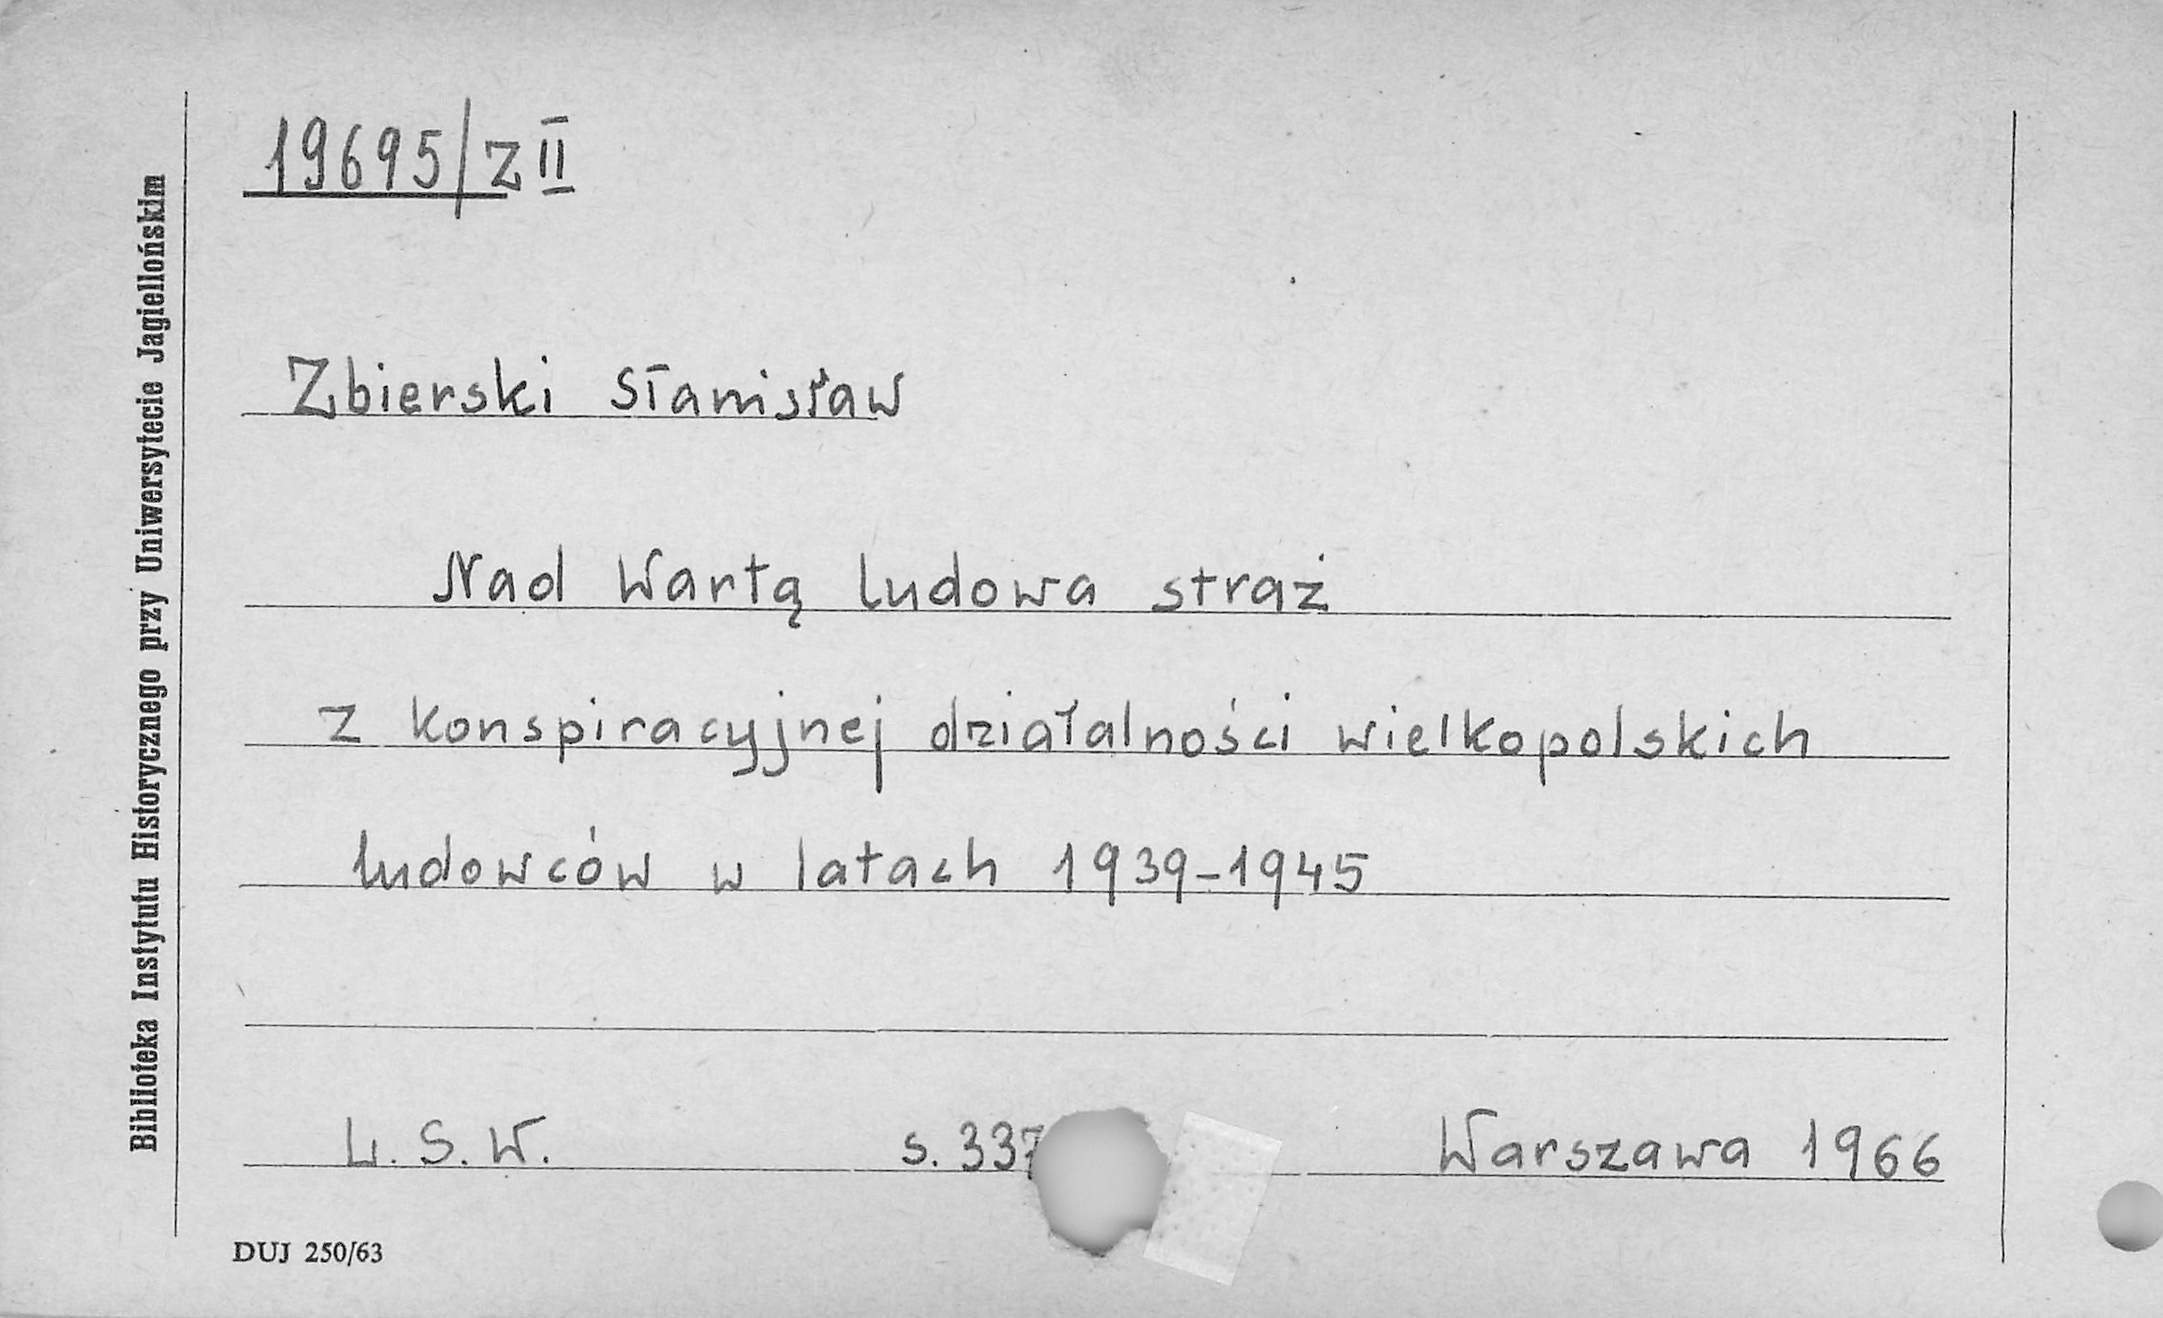 19695/Z II
Zbierski Stanisław
Nad Wartą ludowa straż
z konspiracyjnej działalności wielkopolskich
ludowców w latach 1939-1945
L. S. W. s. 337 Warszawa 1966
DUJ 250/63
Biblioteka Instytutu Historycznego przy Uniwersytecie Jagiellońskim